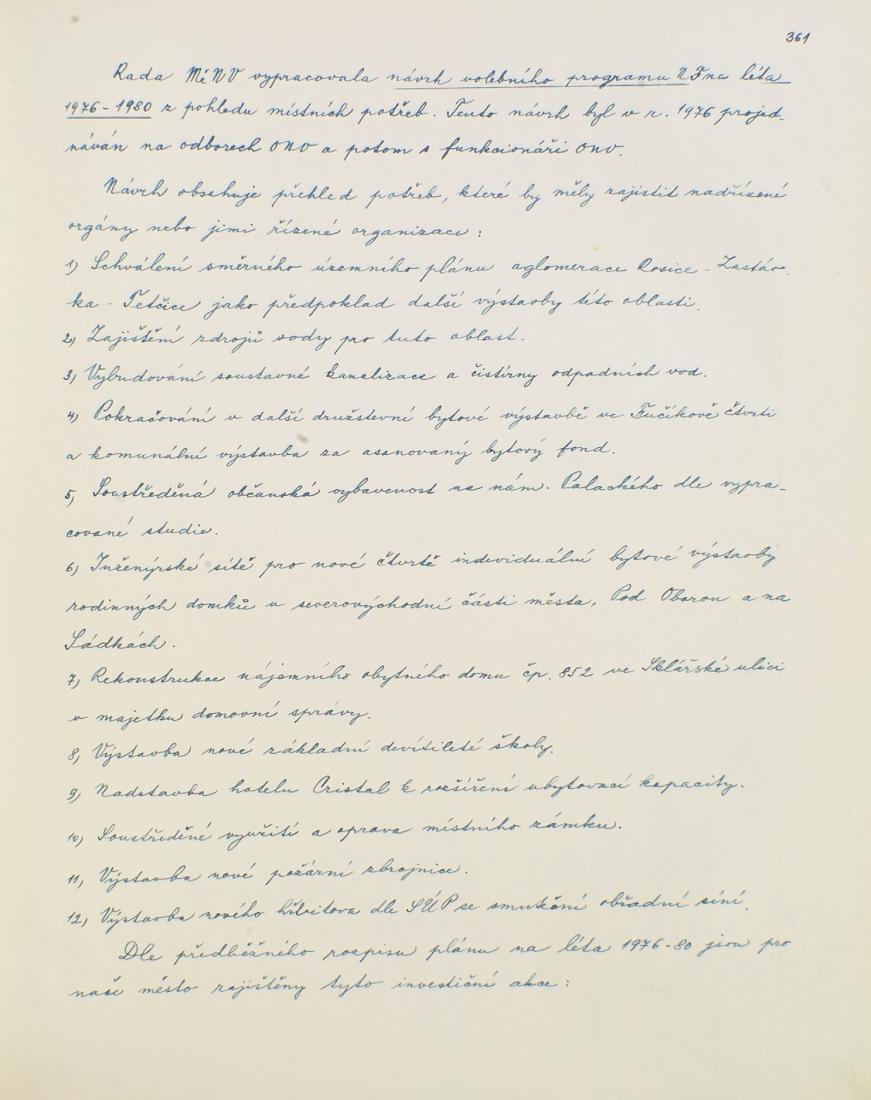 361
Rada MěNV vypracovala návrh volebního programu NF na léta
1976-1980 z pohledu místních potřeb. Tento návrh byl v r. 1976 projed-
náván na odborech ONV a potom s funkcionáři ONV.
Návrh obsahuje přehled potřeb, které by měly zajistit nadřízené
orgány nebo jimi řízené organizace:
1) Schválení směrného územního plánu aglomerace Rosice - Zastáv-
ka - Tetčice jako předpoklad další výstavby této oblasti.
2) Zajištění zdrojů vody pro tuto oblast.
3) Vybudování soustavné kanalizace a čistírny odpadních vod.
4) Pokračování v další družstevní bytové výstavbě ve Fučíkově čtvrti
a komunální výstavba za asanovaný bytový fond.
5) Soustředěná občanská vybavenost na nám. Palackého dle vypra-
cované studie.
6) Inženýrské sítě pro nové čtvrtě individuální bytové výstavby
rodinných domků v severovýchodní části města, Pod Oborou a na
Sádkách.
7) Rekonstrukce nájemního obytného domu čp. 852 ve Sklářské ulici
v majetku domovní správy.
8) Výstavba nové základní devítileté školy.
9) Nadstavba hotelu Cristal k rozšíření ubytovací kapacity.
10) Soustředěné využití a oprava místního zámku.
11) Výstavba nové požární zbrojnice.
12) Výstavba nového hřbitova dle SÚP se smuteční obřadní síní.
Dle předběžného rozpisu plánu na léta 1976-80 jsou pro
naše město zajištěny tyto investiční akce: